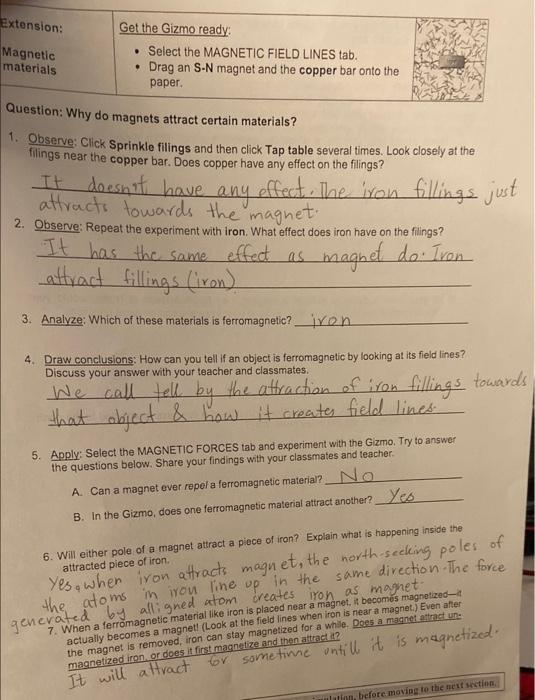 Extension:
Magnetic
materials
Get the Gizmo ready:
• Select the MAGNETIC FIELD LINES tab.
• Drag an S-N magnet and the copper bar onto the
paper.
Question: Why do magnets attract certain materials?
1. Observe: Click Sprinkle filings and then click Tap table several times. Look closely at the
filings near the copper bar. Does copper have any effect on the filings?
It doesn't have any effect. The iron fillings just
attracts towards the magnet.
2. Observe: Repeat the experiment with iron. What effect does iron have on the filings?
It has the same effect as magnet do. Iron
attract fillings (iron)
3. Analyze: Which of these materials is ferromagnetic? iron
4. Draw conclusions: How can you tell if an object is ferromagnetic by looking at its field lines?
Discuss your answer with your teacher and classmates.
We call tell by the attraction of iron fillings towards
that object & how it creates field lines.
5. Apply: Select the MAGNETIC FORCES tab and experiment with the Gizmo. Try to answer
the questions below. Share your findings with your classmates and teacher.
A. Can a magnet ever repel a ferromagnetic material? No
B. In the Gizmo, does one ferromagnetic material attract another? Yes
6. Will either pole of a magnet attract a piece of iron? Explain what is happening inside the
attracted piece of iron.
Yes, when iron attracts magnet, the north-seeking poles of
the atoms in iron line up in the same direction. The force
generated by alligned atom creates iron as magnet.
7. When a ferromagnetic material like iron is placed near a magnet, it becomes magnetized—it
actually becomes a magnet! (Look at the field lines when iron is near a magnet.) Even after
the magnet is removed, iron can stay magnetized for a while. Does a magnet attract un-
magnetized iron, or does it first magnetize and then attract it?
It will attract for sometime untill it is magnetized.
before moving to the next section.